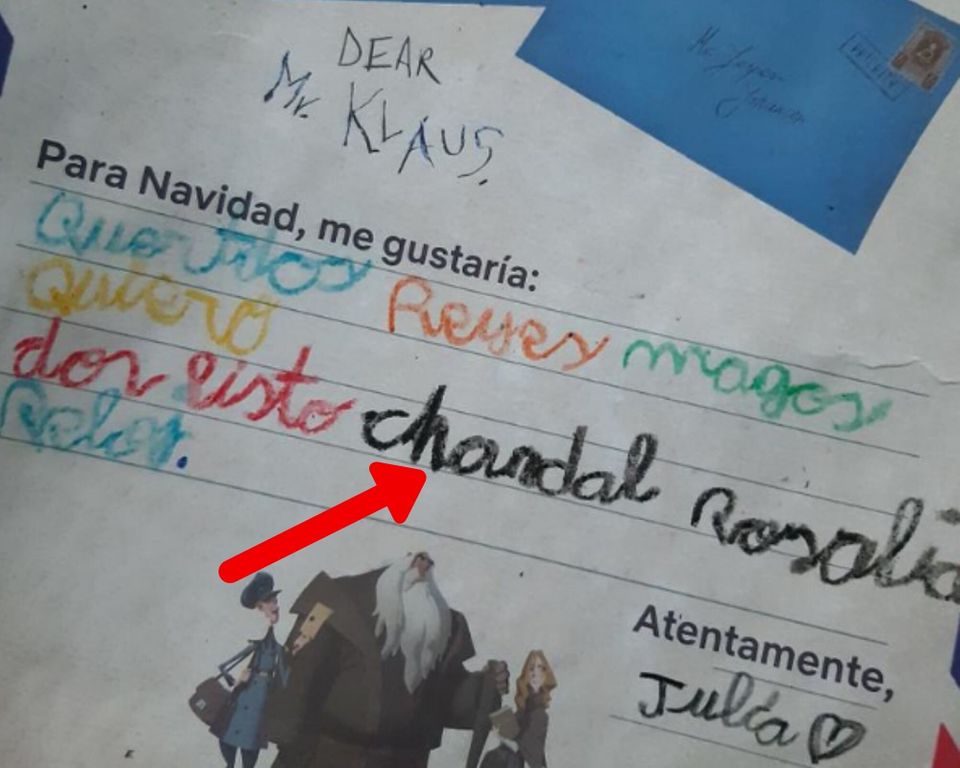 DEAR
Mr. KLAUS.
Para Navidad, me gustaría:
Queridos Reyes magos
Quiero
chandal Rosalia
Atentamente,
Julia